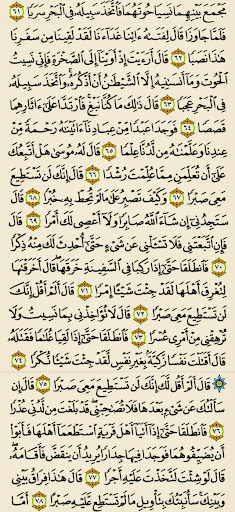 مَجْمَعَ بَيْنِهِمَا نَسِيَا حُوتَهُمَا فَٱتَّخَذَ سَبِيلَهُۥ فِى ٱلْبَحْرِ سَرَبًا ٦١
فَلَمَّا جَاوَزَا قَالَ لِفَتَىٰهُ ءَاتِنَا غَدَآءَنَا لَقَدْ لَقِينَا مِن سَفَرِنَا
هَٰذَا نَصَبًا ٦٢ قَالَ أَرَءَيْتَ إِذْ أَوَيْنَآ إِلَى ٱلصَّخْرَةِ فَإِنِّى نَسِيتُ
ٱلْحُوتَ وَمَآ أَنسَىٰنِيهُ إِلَّا ٱلشَّيْطَٰنُ أَنْ أَذْكُرَهُۥ وَٱتَّخَذَ سَبِيلَهُۥ
فِى ٱلْبَحْرِ عَجَبًا ٦٣ قَالَ ذَٰلِكَ مَا كُنَّا نَبْغِ فَٱرْتَدَّا عَلَىٰٓ ءَاثَارِهِمَا
قَصَصًا ٦٤ فَوَجَدَا عَبْدًا مِّنْ عِبَادِنَآ ءَاتَيْنَٰهُ رَحْمَةً مِّنْ
عِندِنَا وَعَلَّمْنَٰهُ مِن لَّدُنَّا عِلْمًا ٦٥ قَالَ لَهُۥ مُوسَىٰ هَلْ أَتَّبِعُكَ
عَلَىٰٓ أَن تُعَلِّمَنِ مِمَّا عُلِّمْتَ رُشْدًا ٦٦ قَالَ إِنَّكَ لَن تَسْتَطِيعَ
مَعِىَ صَبْرًا ٦٧ وَكَيْفَ تَصْبِرُ عَلَىٰ مَا لَمْ تُحِطْ بِهِۦ خُبْرًا ٦٨ قَالَ
سَتَجِدُنِىٓ إِن شَآءَ ٱللَّهُ صَابِرًا وَلَآ أَعْصِى لَكَ أَمْرًا ٦٩ قَالَ
فَإِنِ ٱتَّبَعْتَنِى فَلَا تَسْـَٔلْنِى عَن شَىْءٍ حَتَّىٰٓ أُحْدِثَ لَكَ مِنْهُ ذِكْرًا
٧٠ فَٱنطَلَقَا حَتَّىٰٓ إِذَا رَكِبَا فِى ٱلسَّفِينَةِ خَرَقَهَا قَالَ أَخَرَقْتَهَا
لِتُغْرِقَ أَهْلَهَا لَقَدْ جِئْتَ شَيْـًٔا إِمْرًا ٧١ قَالَ أَلَمْ أَقُلْ إِنَّكَ
لَن تَسْتَطِيعَ مَعِىَ صَبْرًا ٧٢ قَالَ لَا تُؤَاخِذْنِى بِمَا نَسِيتُ وَلَا
تُرْهِقْنِى مِنْ أَمْرِى عُسْرًا ٧٣ فَٱنطَلَقَا حَتَّىٰٓ إِذَا لَقِيَا غُلَٰمًا فَقَتَلَهُۥ
قَالَ أَقَتَلْتَ نَفْسًا زَكِيَّةًۢ بِغَيْرِ نَفْسٍ لَّقَدْ جِئْتَ شَيْـًٔا نُّكْرًا ٧٤
۞ قَالَ أَلَمْ أَقُل لَّكَ إِنَّكَ لَن تَسْتَطِيعَ مَعِىَ صَبْرًا ٧٥ قَالَ إِن
سَأَلْتُكَ عَن شَىْءٍۭ بَعْدَهَا فَلَا تُصَٰحِبْنِى قَدْ بَلَغْتَ مِن لَّدُنِّى عُذْرًا
٧٦ فَٱنطَلَقَا حَتَّىٰٓ إِذَآ أَتَيَآ أَهْلَ قَرْيَةٍ ٱسْتَطْعَمَآ أَهْلَهَا فَأَبَوْا۟
أَن يُضَيِّفُوهُمَا فَوَجَدَا فِيهَا جِدَارًا يُرِيدُ أَن يَنقَضَّ فَأَقَامَهُۥ
قَالَ لَوْ شِئْتَ لَتَّخَذْتَ عَلَيْهِ أَجْرًا ٧٧ قَالَ هَٰذَا فِرَاقُ بَيْنِى
وَبَيْنِكَ سَأُنَبِّئُكَ بِتَأْوِيلِ مَا لَمْ تَسْتَطِع عَّلَيْهِ صَبْرًا ٧٨ أَمَّا